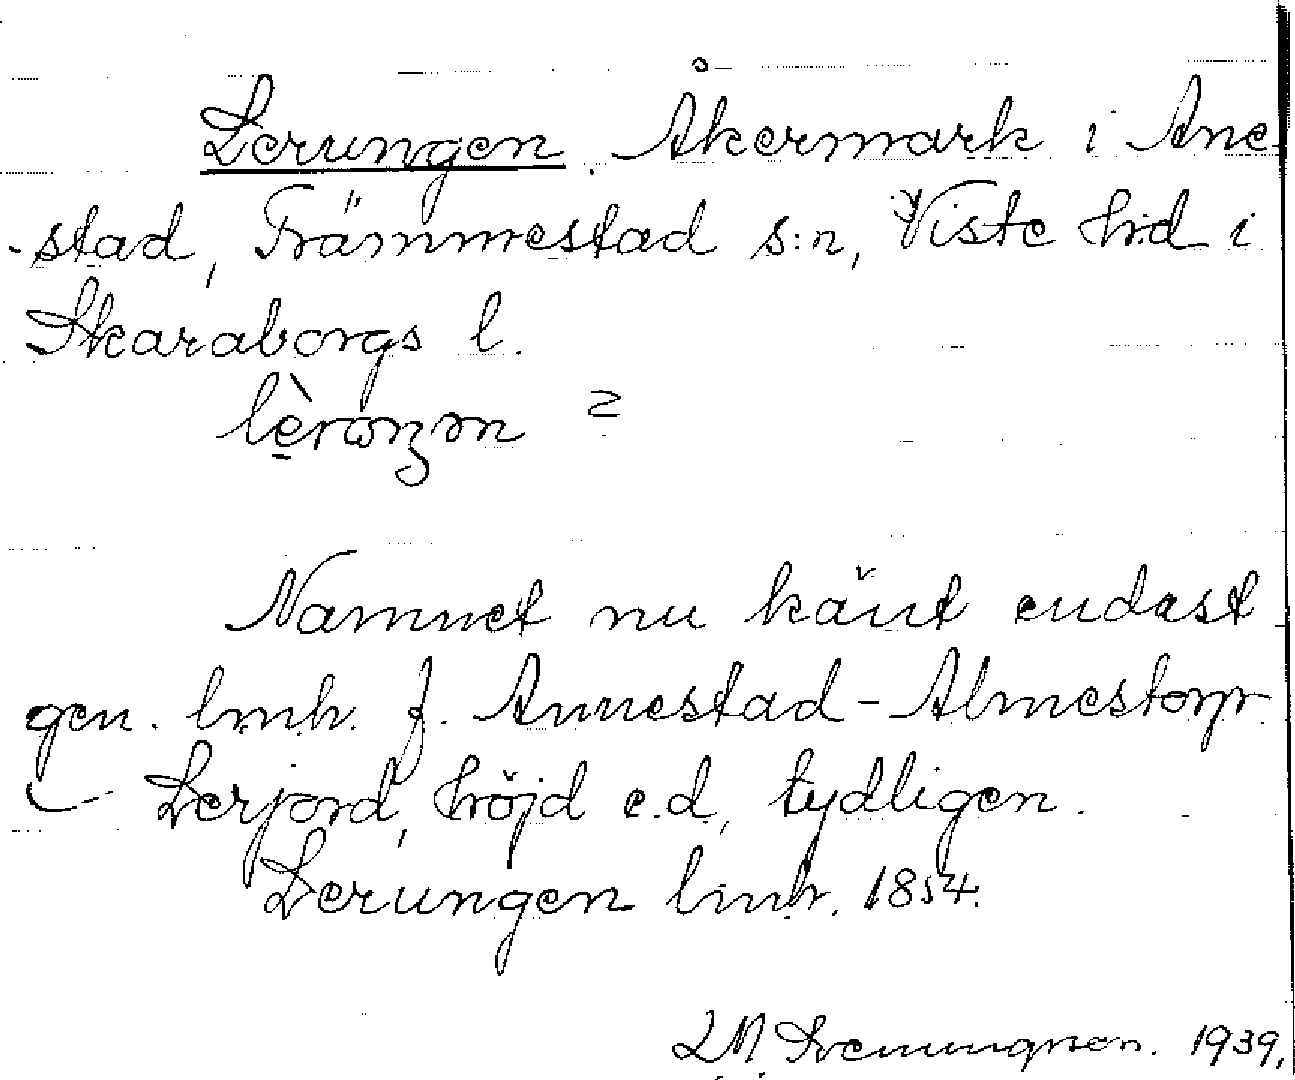 Lerungen. Åkermark i Ane
-stad, Främmestad s:n, Viste hd i
Skaraborgs l.
Namnet nu känt endast
gen. lmh. f. Annestad-Almestorp.
Lerjord, höjd e.d., tydligen.
Lerungen lmh. 1854.
1939.